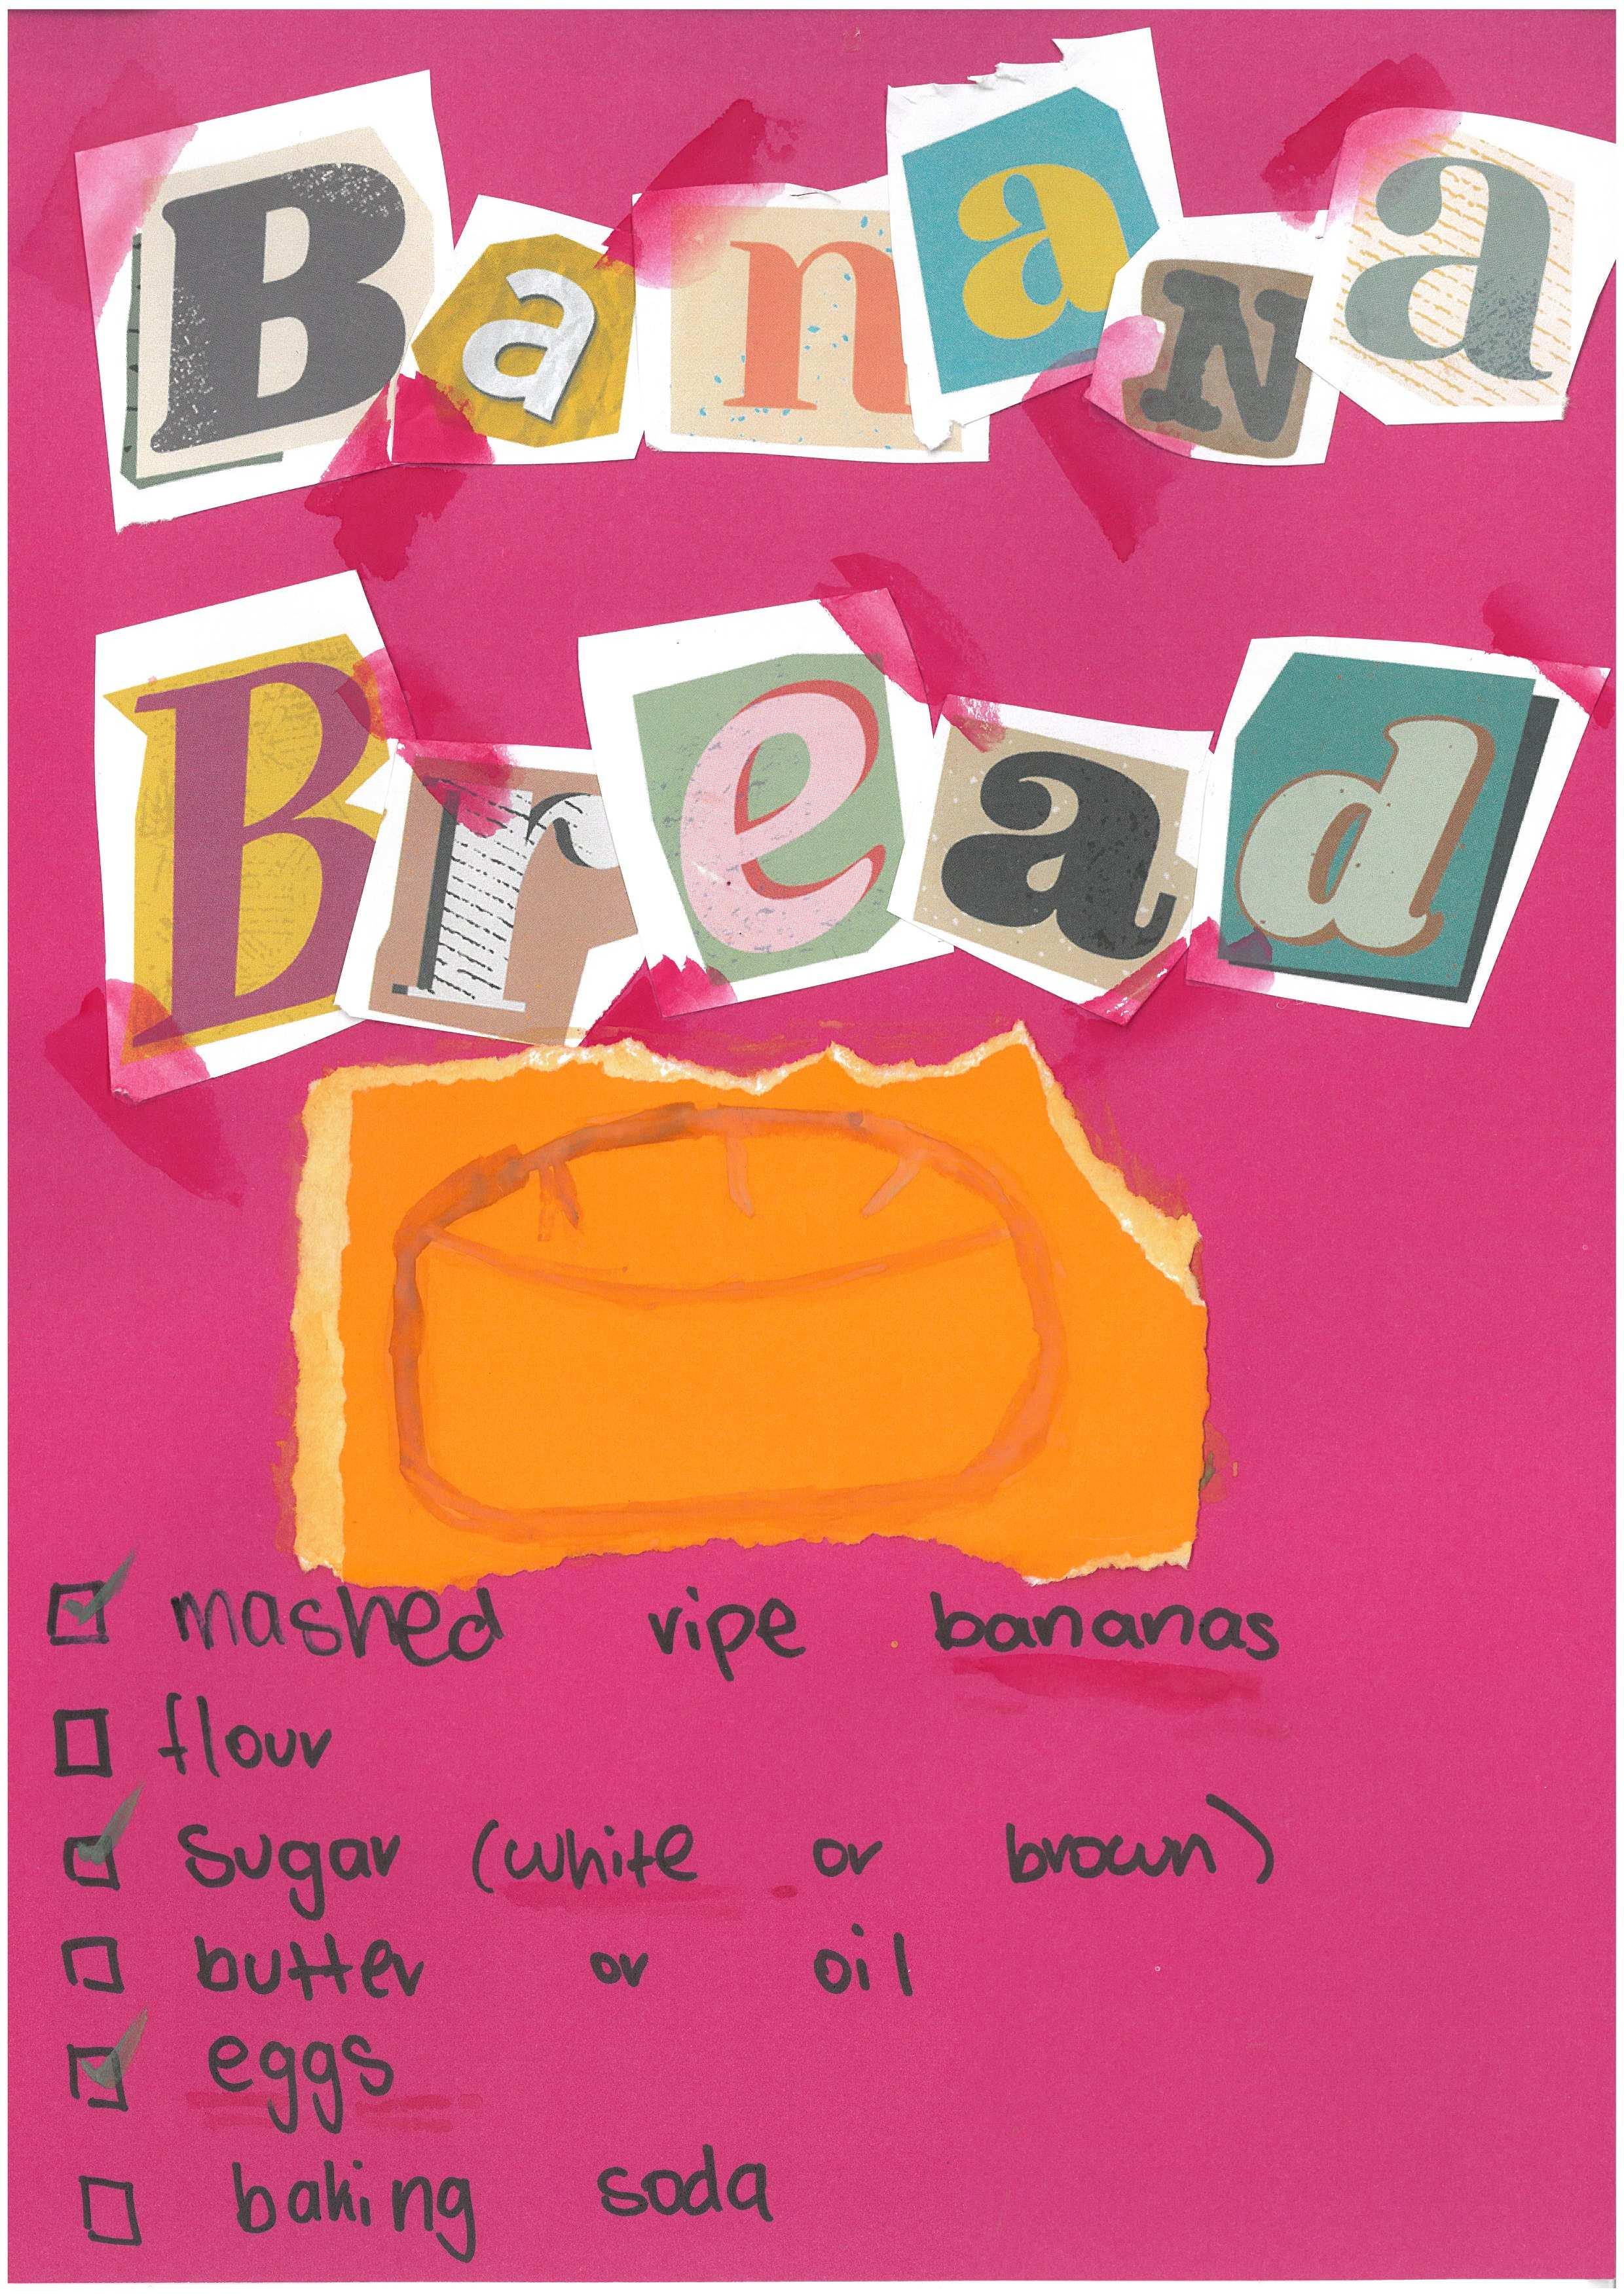 BanaNa
Bread
mashed ripe bananas
flour
sugar (white or brown)
butter or oil
eggs
baking soda